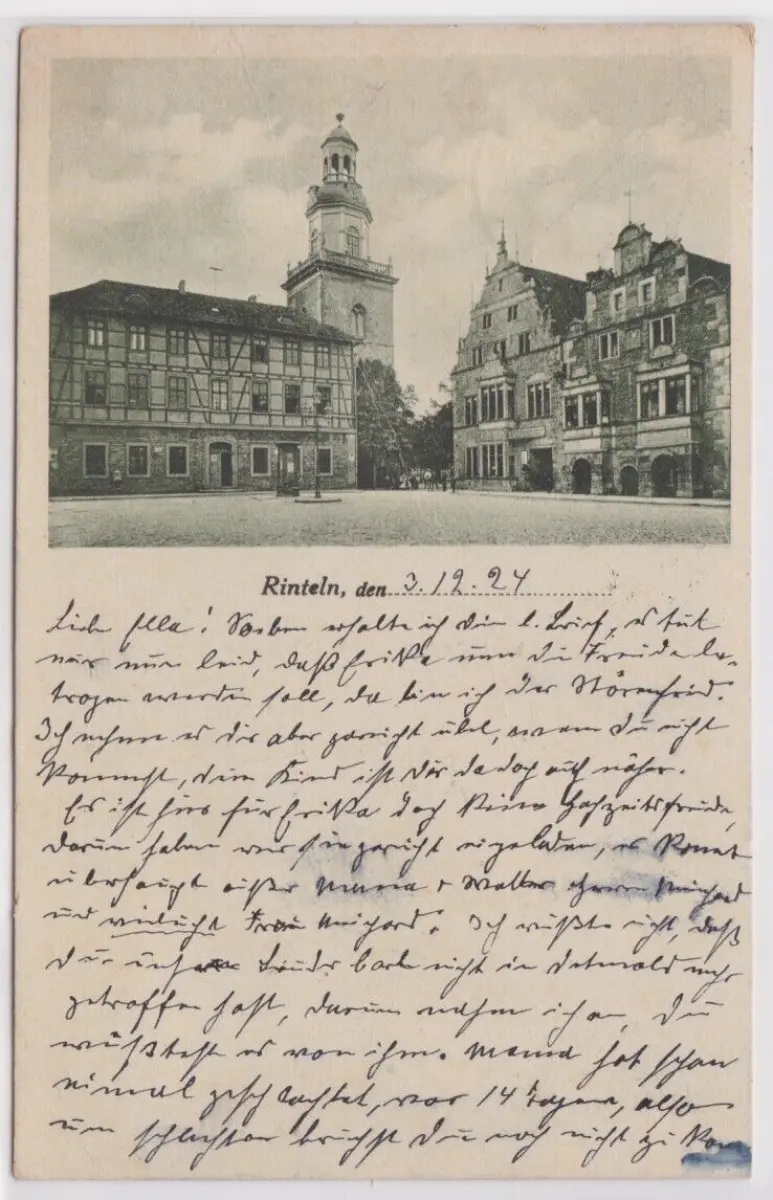 Rinteln, den 3.12.24
Liebe Ella! Soeben erhalte ich dein l. Brief, es tut
mir nun leid, daß Erika um die Freude be-
trogen werden soll, da bin ich der Störenfried.
Ich nehme es dir aber garnicht übel, wenn Du nicht
kommst, dein Kind ist dir da doch auch näher.
Es ist hier für Erika doch keine Hochzeitsfreude,
darum haben wir sie garnicht eingeladen, es kommt
überhaupt außer Mama + Walter Herrn
und vielleicht Frau. Ich wußte nicht, daß
Du Bruder nicht in Detmold mehr
getroffen hast, darum nahm ich an, Du
wüßtest es von ihm. Mama hat schon
einmal geschlachtet, vor 14 Tagen, also
um schlachten brauchst Du noch nicht zu kom